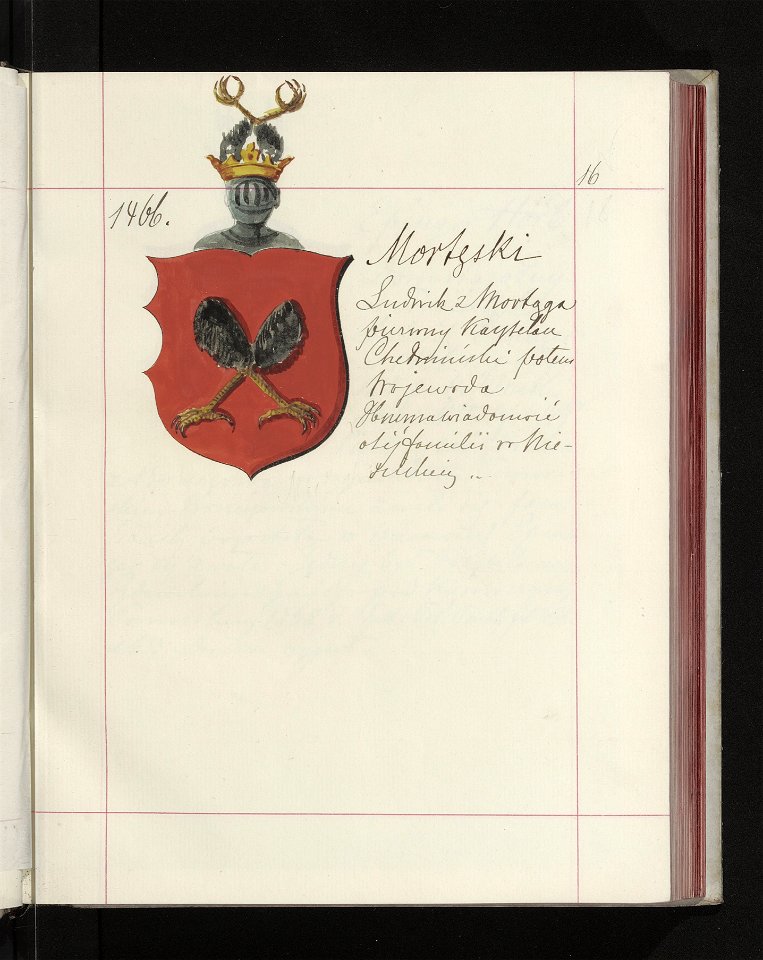 16
1466.
Mortęski
Ludwik z Mortąga
pierwszy Kasztelan
Chełmiński potem
Wojewoda
wiadomość
o tej familii w Nie-